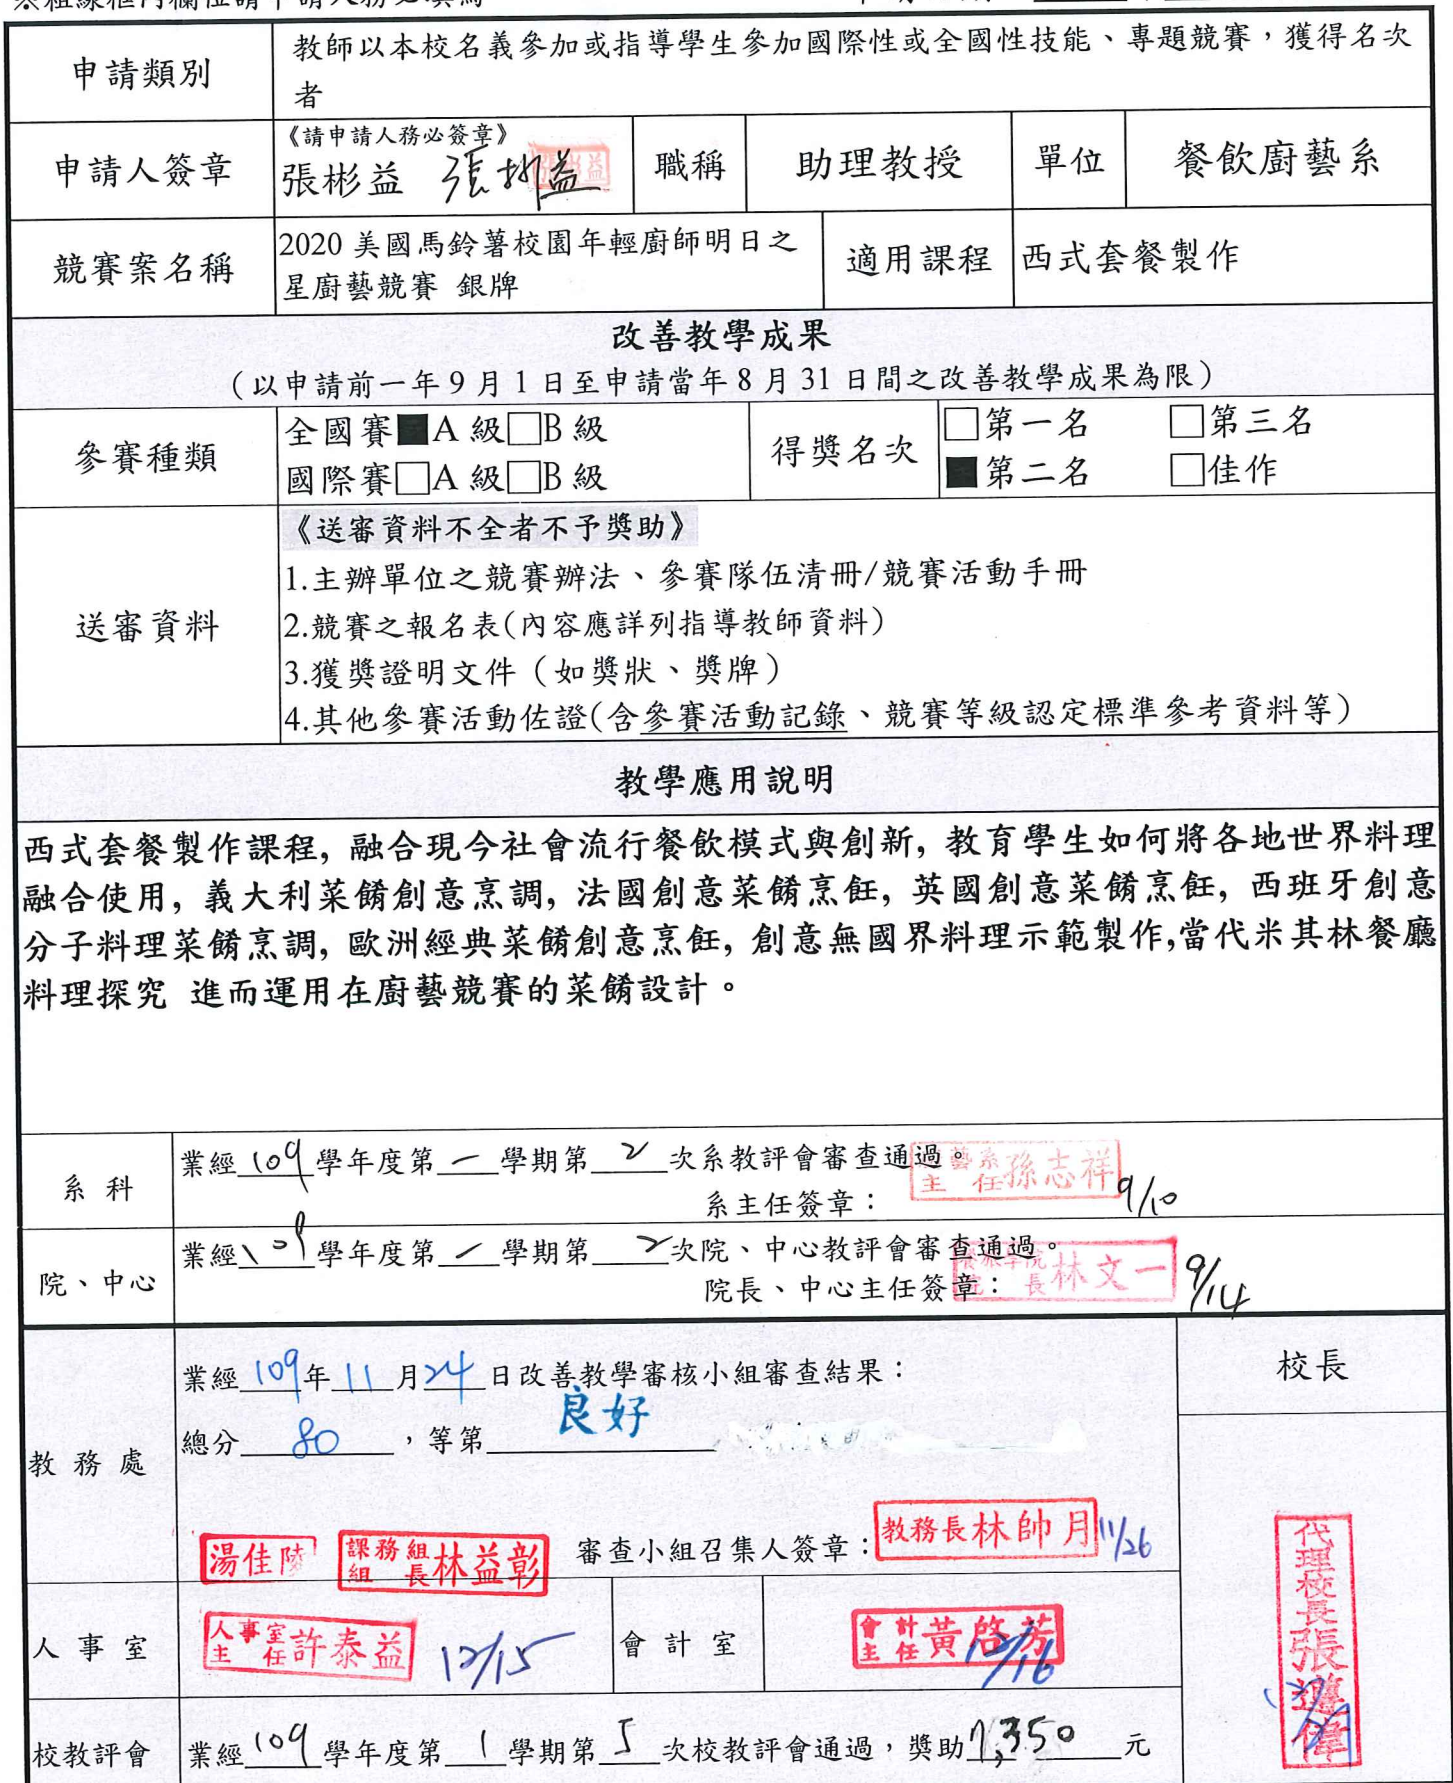 申請類別
教師以本校名義參加或指導學生參加國際性或全國性技能、專題競賽，獲得名次
者
申請人簽章
《請申請人務必簽章》
張彬益 張彬益
職稱
助理教授
單位
餐飲廚藝系
競賽案名稱
2020 美國馬鈴薯校園年輕廚師明日之
星廚藝競賽 銀牌
適用課程
西式套餐製作
改善教學成果
（以申請前一年 9 月 1 日至申請當年 8 月 31 日間之改善教學成果為限）
參賽種類
全國賽■A 級□B 級
國際賽□A 級□B 級
得獎名次
□第一名 □第三名
■第二名 □佳作
送審資料
《送審資料不全者不予獎助》
1.主辦單位之競賽辦法、參賽隊伍清冊/競賽活動手冊
2.競賽之報名表(內容應詳列指導教師資料)
3.獲獎證明文件（如獎狀、獎牌）
4.其他參賽活動佐證(含參賽活動記錄、競賽等級認定標準參考資料等)
教學應用說明
西式套餐製作課程, 融合現今社會流行餐飲模式與創新, 教育學生如何將各地世界料理
融合使用, 義大利菜餚創意烹調, 法國創意菜餚烹飪, 英國創意菜餚烹飪, 西班牙創意
分子料理菜餚烹調, 歐洲經典菜餚創意烹飪, 創意無國界料理示範製作,當代米其林餐廳
料理探究 進而運用在廚藝競賽的菜餚設計。
系科
業經109學年度第一學期第2次系教評會審查通過。
系主任簽章：
主任孫志祥 9/10
院、中心
業經109學年度第一學期第2次院、中心教評會審查通過。
院長、中心主任簽章：
林文一 9/14
教務處
業經109年11月24日改善教學審核小組審查結果：
總分80，等第良好
湯佳陵
課務組組長林益彰
審查小組召集人簽章：
教務長林帥月 11/26
校長
代理校長張
人事室
人事室主任許泰益 12/15
會計室
會計主任黃啓芳 12/16
校教評會
業經109學年度第1學期第5次校教評會通過，獎助7,350元